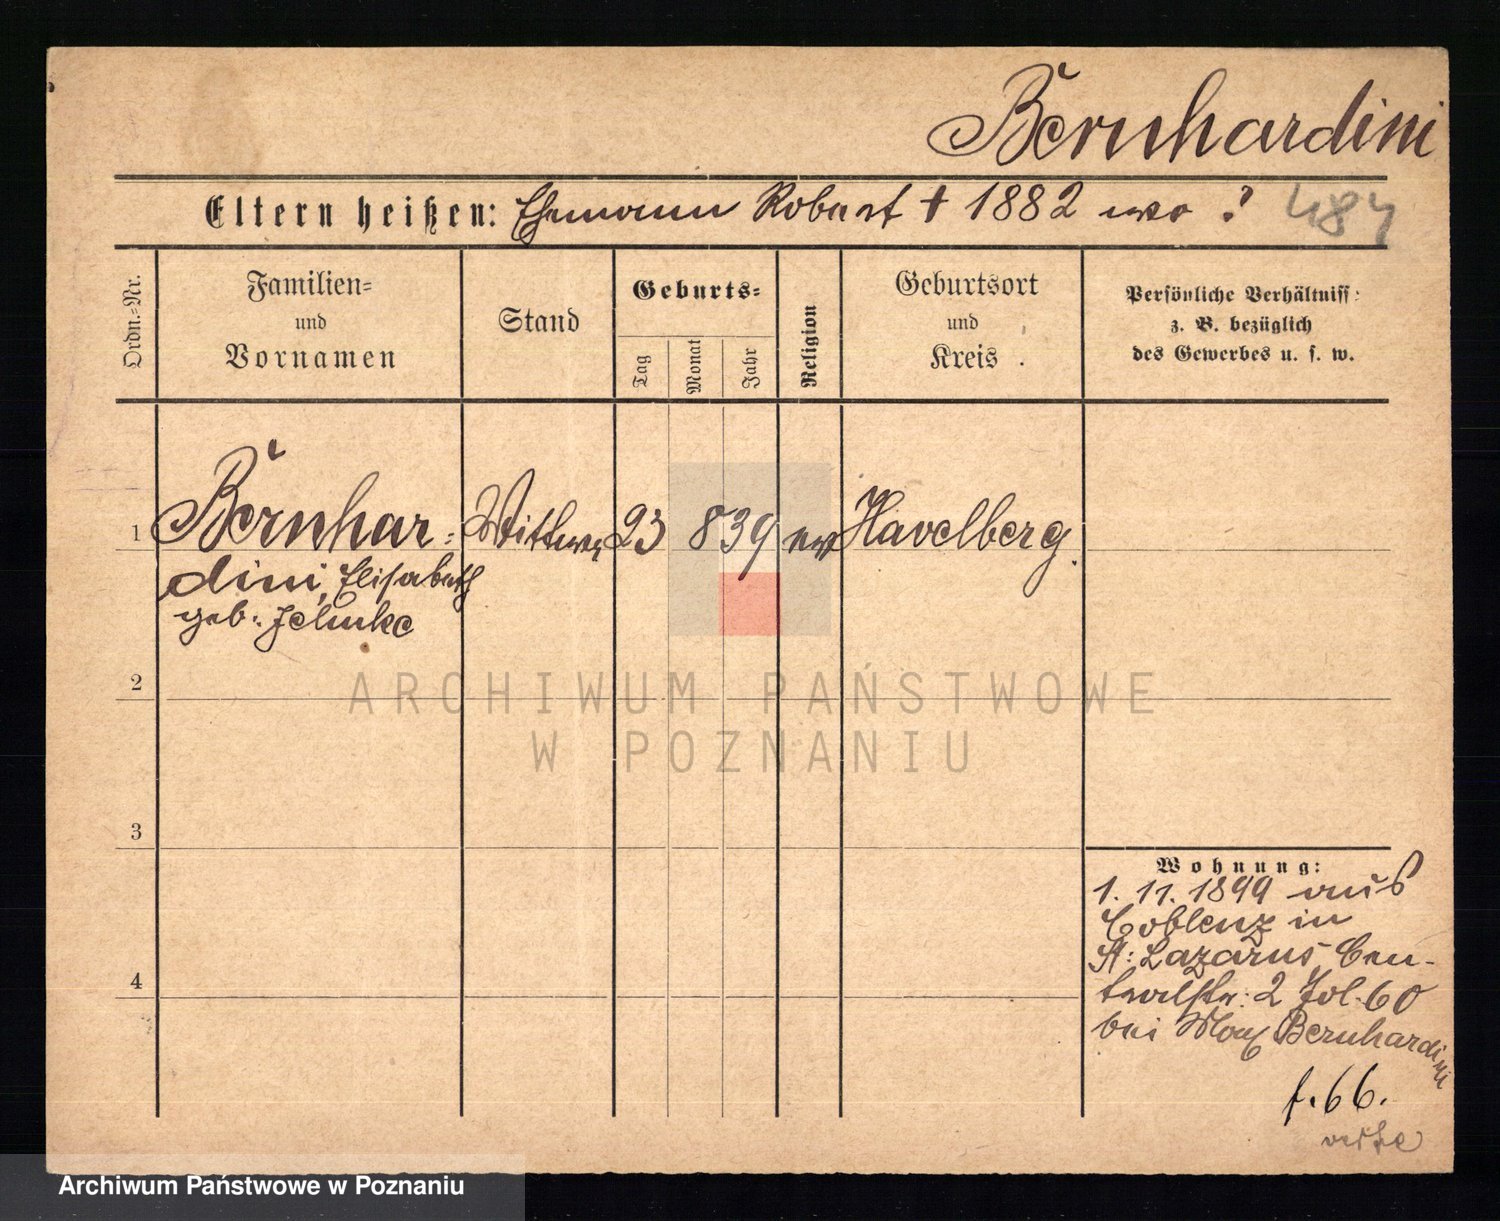 Bernhardini
Eltern heißen: Ehemann Robert † 1882 wo ? 484
Ordn.-Nr.
Familien=
und
Vornamen
Stand
Geburts=
Tag
Monat
Jahr
Religion
Geburtsort
und
Kreis.
Persönliche Verhältniss:
z. B. bezüglich
des Gewerbes u. s. w.
1 Bernhar= Wittwe 23 8 39 ev Havelberg.
dini, Elisabeth
geb.
2
ARCHIWUM PAŃSTWOWE
W POZNANIU
3
Wohnung:
1. 11. 1899 aus
Coblenz in
St: Lazarus Cen-
4
tralstr: 2 Fol. 60
bei Max Bernhardini
f. 66.
Archiwum Państwowe w Poznaniu